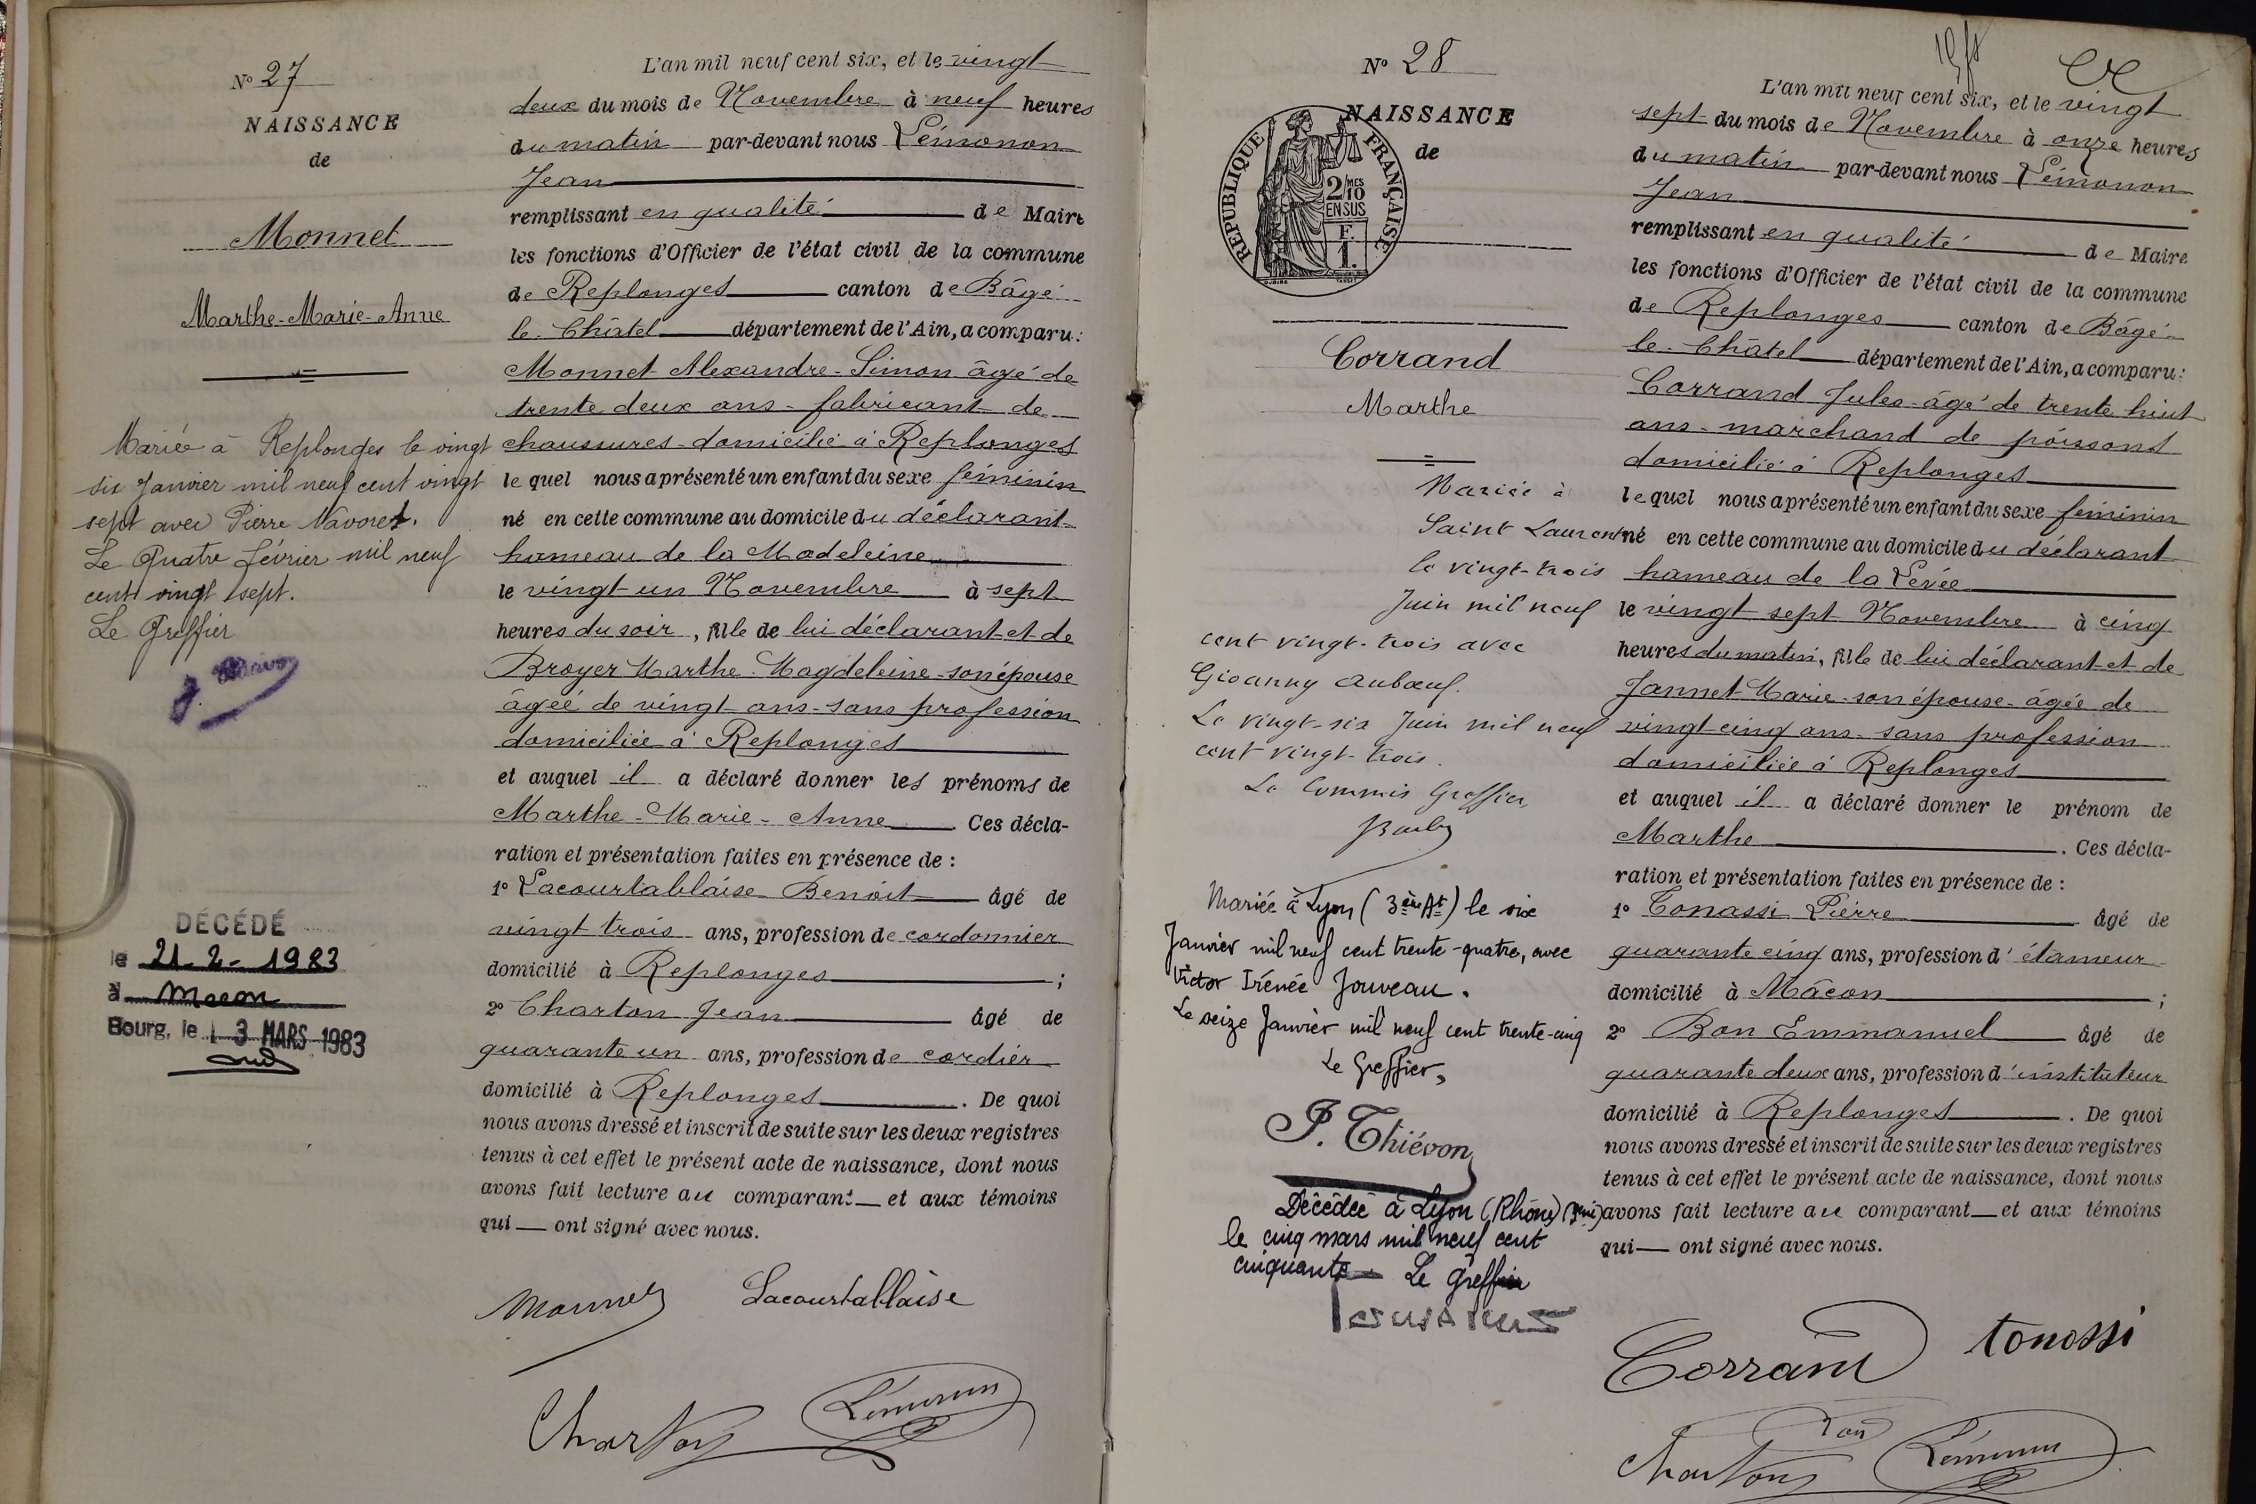 N° 27
NAISSANCE
de
Monnet
Marthe-Marie-Anne
Mariée à Replonges le vingt
six Janvier mil neuf cent vingt
sept avec Pierre Navoret.
Le Quatre février mil neuf
cent vingt sept.
Le Greffier
DÉCÉDÉ
le 21-2-1983
à Macon
Bourg, le 1 3 MARS 1983
L'an mil neuf cent six, et le vingt
deux du mois de Novembre à neuf heures
du matin par-devant nous Lémonon
Jean
remplissant en qualité de Maire
les fonctions d'Officier de l'état civil de la commune
de Replonges canton de Bâgé
le-Châtel département de l'Ain, a comparu:
Monnet Alexandre-Simon âgé de
trente deux ans-fabricant de
chaussures-domicilié à Replonges
le quel nous a présenté un enfant du sexe féminin
né en cette commune au domicile du déclarant
hameau de la Madeleine
le vingt un Novembre à sept
heures du soir, fille de lui déclarant et de
Broyer Marthe-Magdeleine-son épouse
âgée de vingt ans-sans profession
domiciliée à Replonges
et auquel il a déclaré donner les prénoms de
Marthe-Marie-Anne Ces décla-
ration et présentation faites en présence de :
1° Lacourtablaise Benoit âgé de
vingt trois ans, profession de cordonnier
domicilié à Replonges ;
2° Charton Jean âgé de
quarante un ans, profession de cordier
domicilié à Replonges . De quoi
nous avons dressé et inscrit de suite sur les deux registres
tenus à cet effet le présent acte de naissance, dont nous
avons fait lecture au comparant et aux témoins
qui ont signé avec nous.
Monnet Lacourtablaise
Charton Lémonon
N° 28
NAISSANCE
de
RÉPUBLIQUE FRANÇAISE
2/10MES
EN SUS
F.
1.
Corrand
Marthe
Mariée à
Saint Laurent
le vingt-trois
Juin mil neuf
cent vingt-trois avec
Gioanny Auboeuf.
Le vingt-six Juin mil neuf
cent vingt-trois.
Le Commis Greffier,
Mariée à Lyon (3ème At) le six
Janvier mil neuf cent trente-quatre, avec
Victor Irénée Jouveau.
Le seize Janvier mil neuf cent trente-cinq
Le Greffier,
P. Thiévon
Décédée à Lyon (Rhône)
le cinq mars mil neuf cent
cinquante Le Greffier
L'an mil neuf cent six, et le vingt
sept du mois de Novembre à onze heures
du matin par-devant nous Lémonon
Jean
remplissant en qualité de Maire
les fonctions d'Officier de l'état civil de la commune
de Replonges canton de Bâgé
le-Châtel département de l'Ain, a comparu:
Corrand Jules-âgé de trente huit
ans-marchand de poissons
domicilié à Replonges
le quel nous a présenté un enfant du sexe féminin
né en cette commune au domicile du déclarant
hameau de la Levée
le vingt sept Novembre à cinq
heures du matin, fille de lui déclarant et de
Jannet Marie-son épouse-âgée de
vingt cinq ans-sans profession
domiciliée à Replonges
et auquel il a déclaré donner le prénom de
Marthe . Ces décla-
ration et présentation faites en présence de :
1° Tonassi Pierre âgé de
quarante cinq ans, profession d'étameur
domicilié à Mâcon ;
2° Bon Emmanuel âgé de
quarante deux ans, profession d'instituteur
domicilié à Replonges . De quoi
nous avons dressé et inscrit de suite sur les deux registres
tenus à cet effet le présent acte de naissance, dont nous
avons fait lecture au comparant et aux témoins
qui ont signé avec nous.
Corrand tonossi
Bon
Charton Lémonon